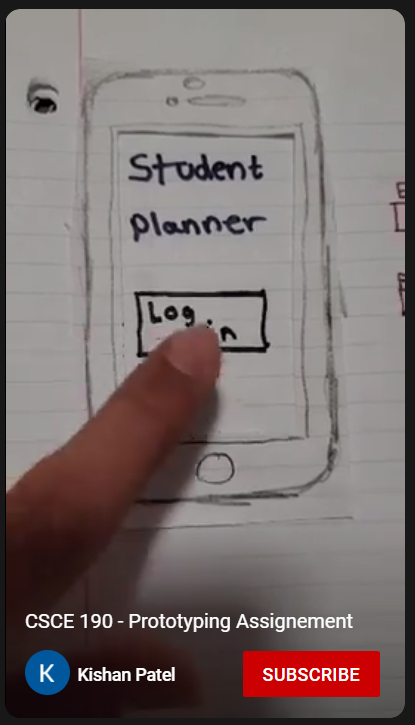 Student
Planner
Log
in
CSCE 190 - Prototyping Assignement
K
Kishan Patel
SUBSCRIBE